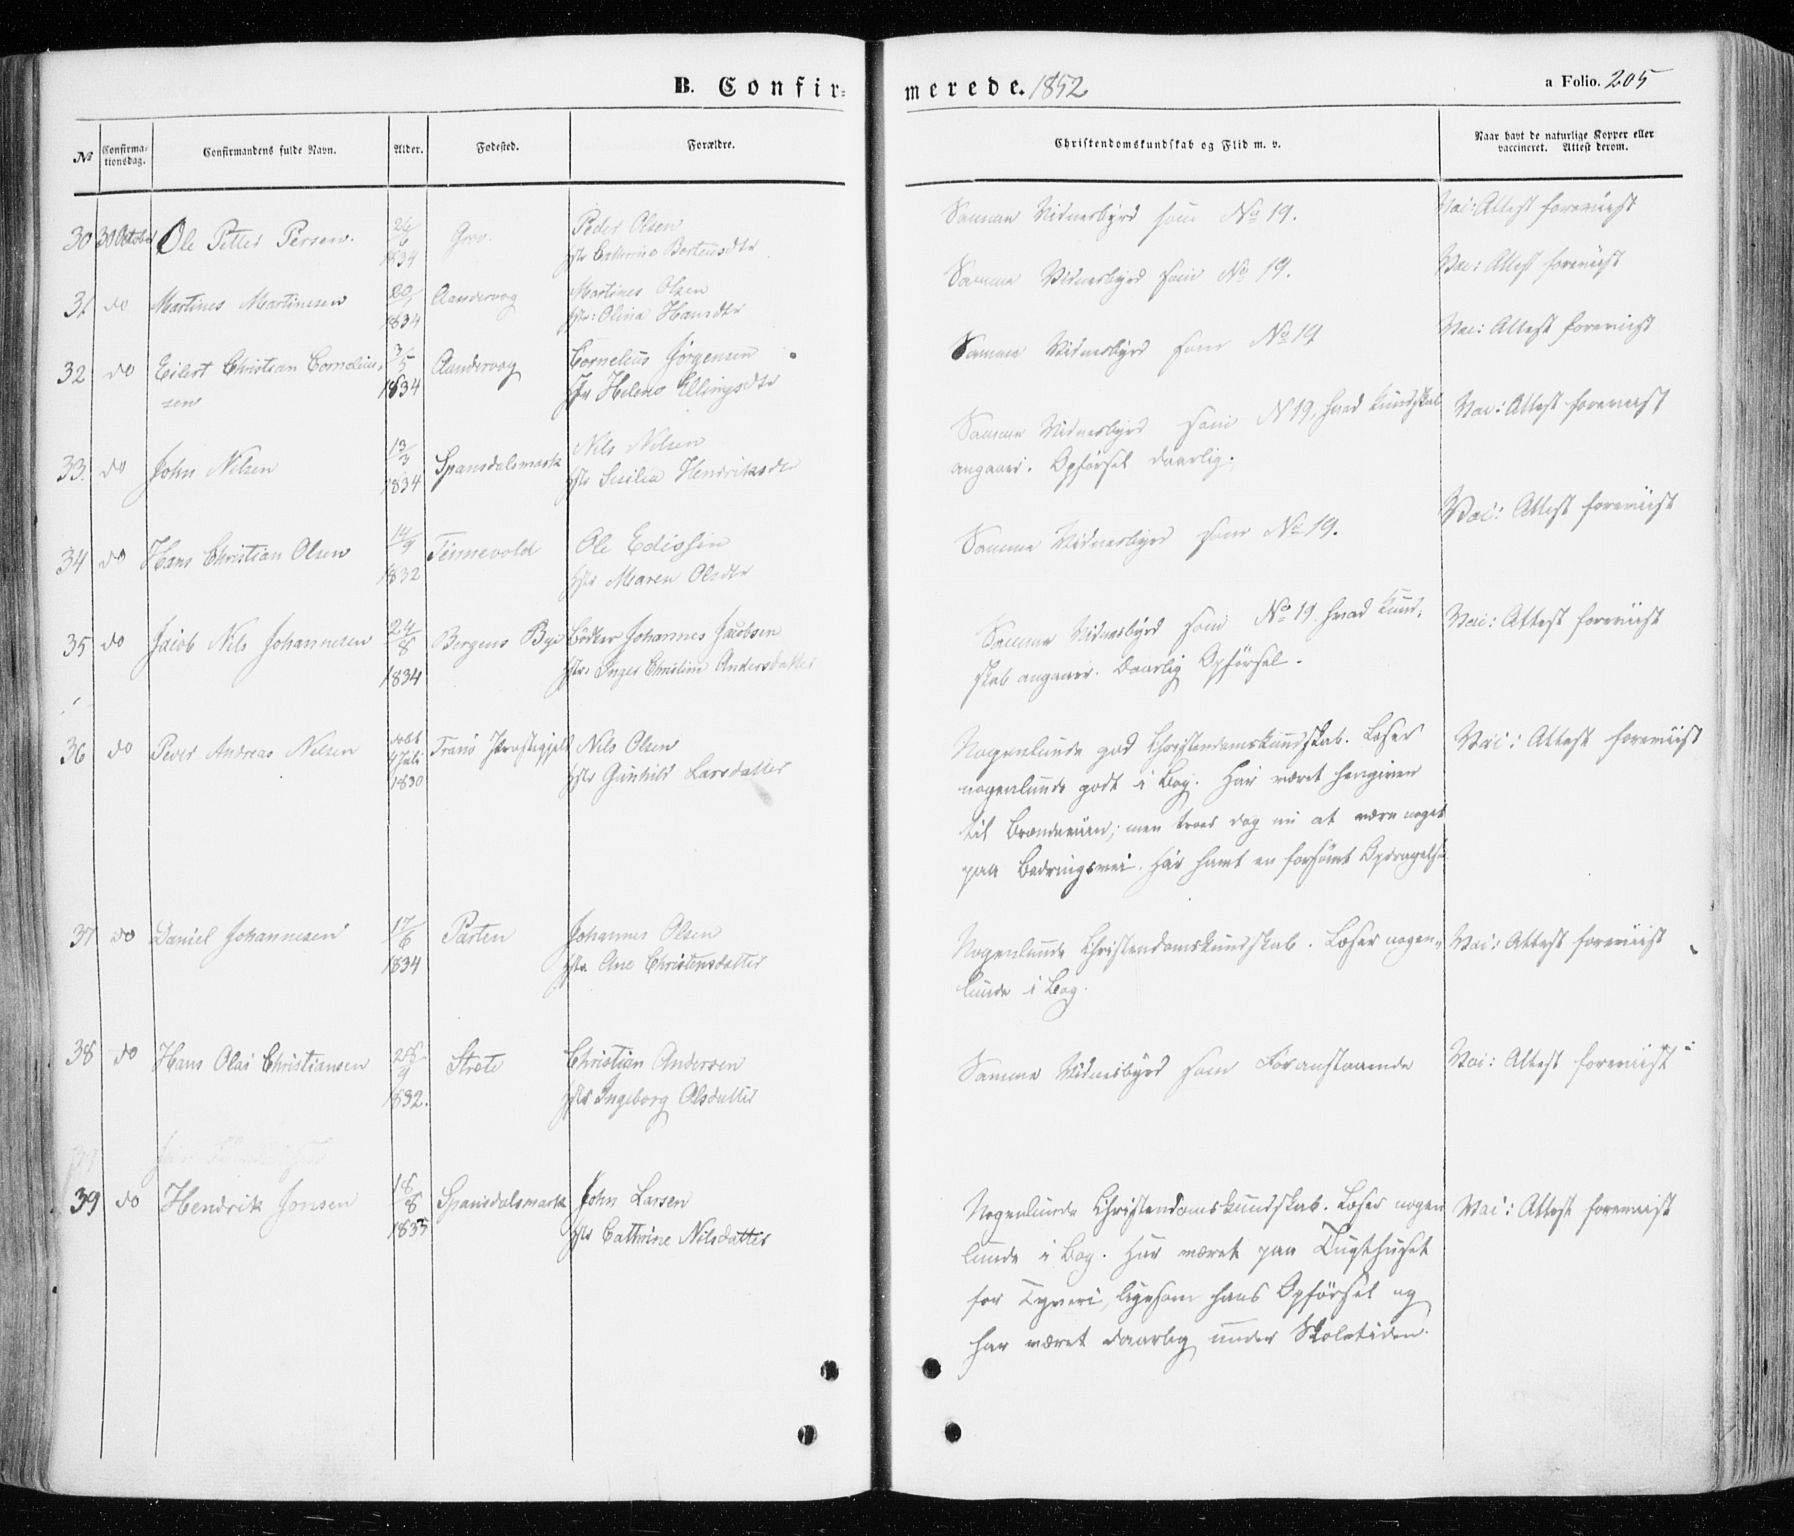 B. Confirmerede. 1852
a Folio. 205
No Confirmationsdag. Confirmandens fulde Navn. Alder. Fødested. Forældre. Christendomskundskab og Flid m. v. Naar havt de naturlige Kopper eller vaccineret. Attest derom.
30 30 October Ole Petter Persen. 26/6 1834 Grov. Peder Olsen
Samme Vidnesbyrd som No 19. Vac: Attest foreviist
31 do Martines Martinesen 1834 Aandervag Martines Olsen
Hstr: Olina Hansdtr
Samme Vidnesbyrd som No 19. Vac: Attest foreviist
32 do Eilert Christian Cornelius-
sen 3/5 1834 Aandervag Cornelius Jørgensen
Helene Ellingsdtr
Samme Vidnesbyrd som No 19 Vac: Attest foreviist
33. do John Nilsen 13/3 1834 Spansdalsmark Nils Nilsen
Hstr Sisilia Hendriksdtr
Samme Vidnesbyrd som N 19, hvad Kundskab
angaaer. Opførsel daarlig. Vac: Attest foreviist
34 do Hans Christian Olsen 14/9 1832 Tennevold Ole
Hstr Maren Olsdtr
Samme Vidnesbyrd som No 19. Vac: Attest foreviist
35 do Jacob Nils Johannesen 24/8 1834 Bergens Bye Bødker Johannes Jacobsen
Hstr. Inger Christine Andersdatter
Samme Vidnesbyrd som No 19. hvad Kund-
skab angaaer. Daarlig Opførsel. Vac: Attest foreviist
36 do Peder Andreas Nilsen døbt 4 Juli 1830 Tranø Præstegjeld Nils Olsen
Hstr Gunhild Larsdatter
Nogenlunde god Christendomskundskab. Læser
nogenlunde godt i Bog. Har været hengiven
til Brændeviin; men troes dog nu at være noget
paa Bedringsvei. Har havt en forsømt Opdragelse
Vac: Attest foreviist
37 do Daniel Johannesen 17/6 1834 Parten Johannes Olsen
Hstr. Ane Christensdatter
Nogenlunde Christendomskundskab. Læser nogen-
lunde i Bog. Vac: Attest foreviist
38 do Hans Olai Christiansen 28/9 1832. Strøte Christian Andersen
Hstr Ingeborg Olsdatter
Samme Vidnesbyrd som Foranstaaende Vac: Attest foreviist
39 do Hendrik Jonsen 18/8 1833 Spansdalsmark John Larsen
Hstr Cathrine Nilsdatter
Nogenlunde Christendomskundskab. Læser nogen
lunde i Bog. Har været paa Tugthuset
for Tyveri, ligesom hans Opførsel og
har været daarlig under Skoletiden.
Vac: Attest foreviist